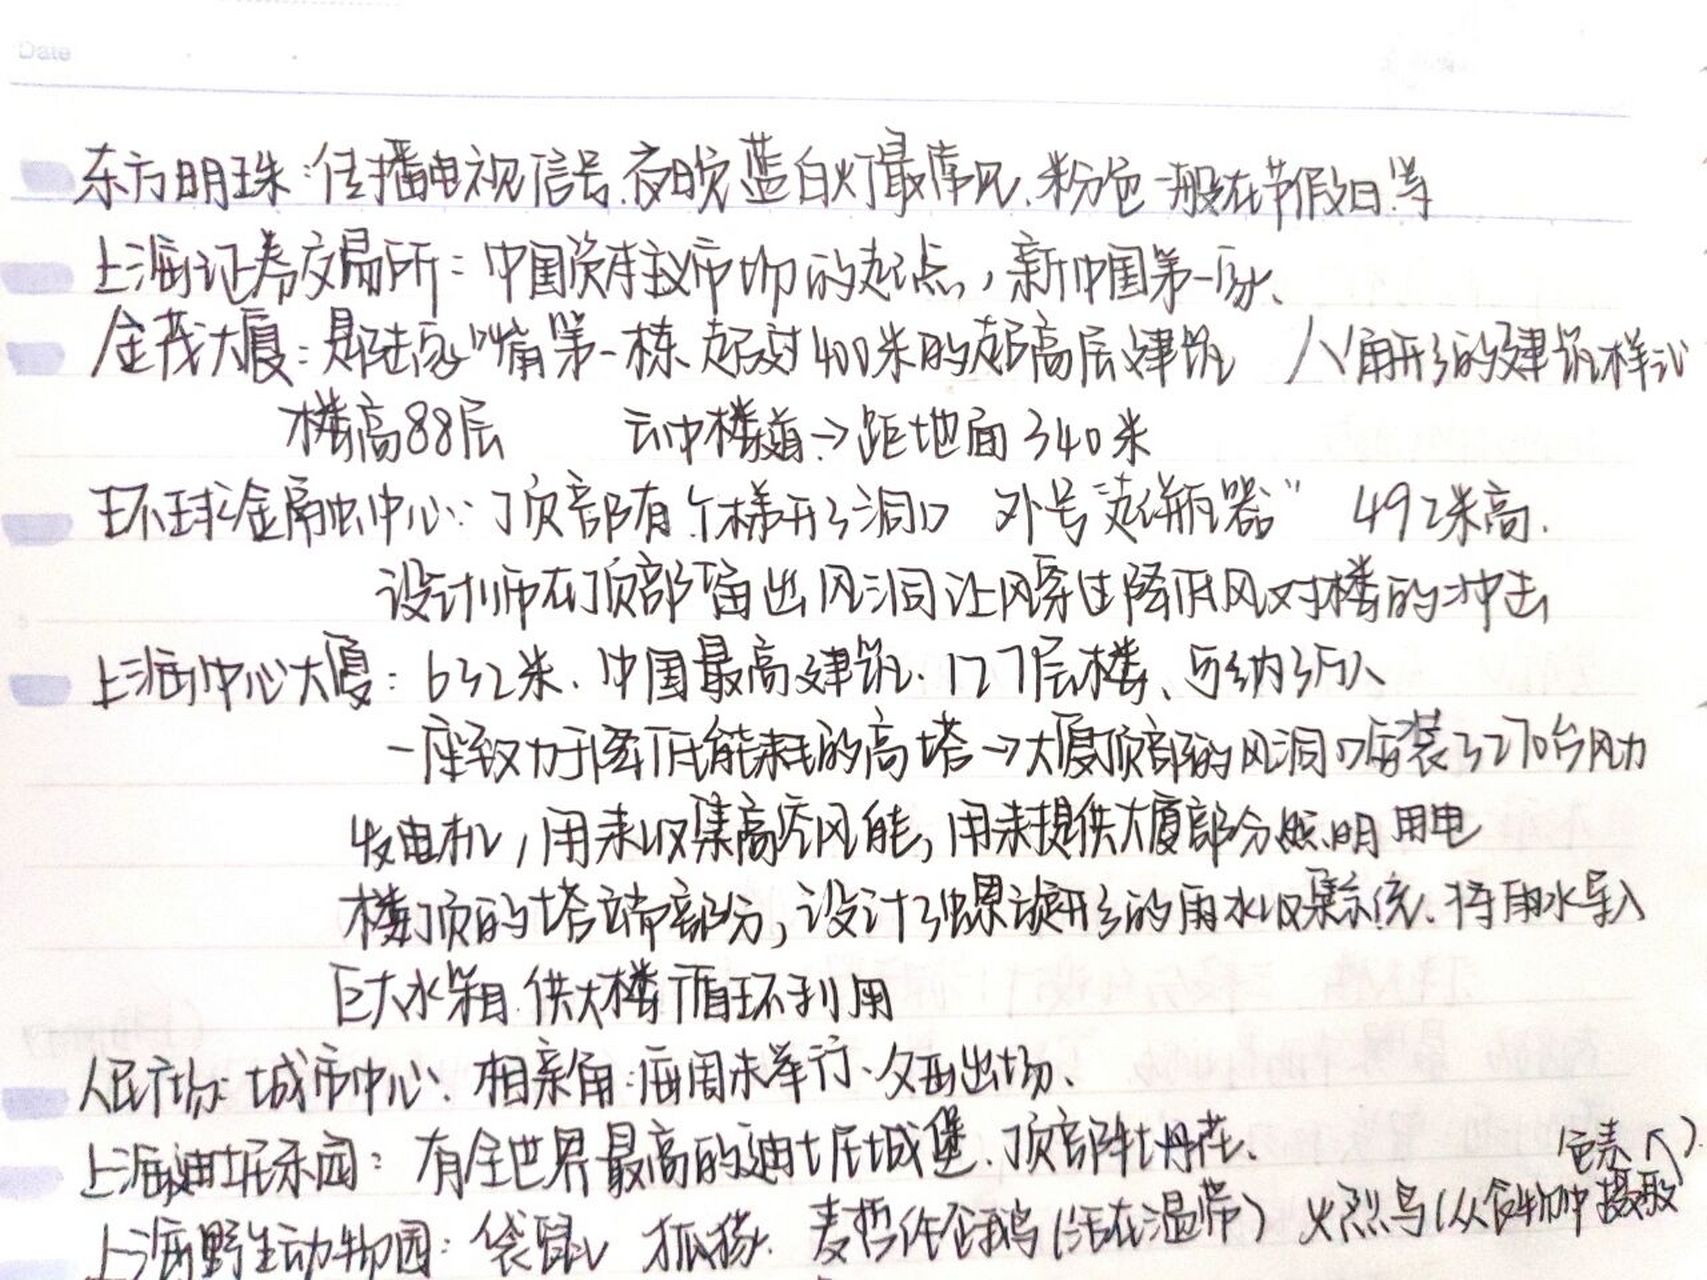 Date
东方明珠:传播电视信号.夜晚蓝白灯最常见.粉色一般在节假日.等
上海证券交易所:中国资本主义市场的起点,新中国第一家、
金茂大厦:是陆家"嘴第一栋超过400米的超高层建筑 八角形的建筑样式
楼高88层 云中楼道→距地面340米
环球金融中心:顶部有个梯形洞口 外号"起瓶器" 492米高.
设计师在顶部留出风洞让风穿过降低风对楼的冲击
上海中心大厦:632米.中国最高建筑.127层楼、可纳3万人
一座致力于降低能耗的高塔→大厦顶部的风洞口安装了270台风力
发电机,用来收集高空风能,用来提供大厦部分照明用电
楼顶的塔端部分,设计了螺旋形的雨水收集系统.将雨水导入
巨大水箱.供大楼循环利用
人民广场:城市中心:相亲角:每周末举行、父母出场、
上海迪士尼乐园:有全世界最高的迪士尼城堡.顶部牡丹花.
色素个).
上海野生动物园:袋鼠 狐猴. 麦哲伦企鹅(活在温带) 火烈鸟(从食物中摄取